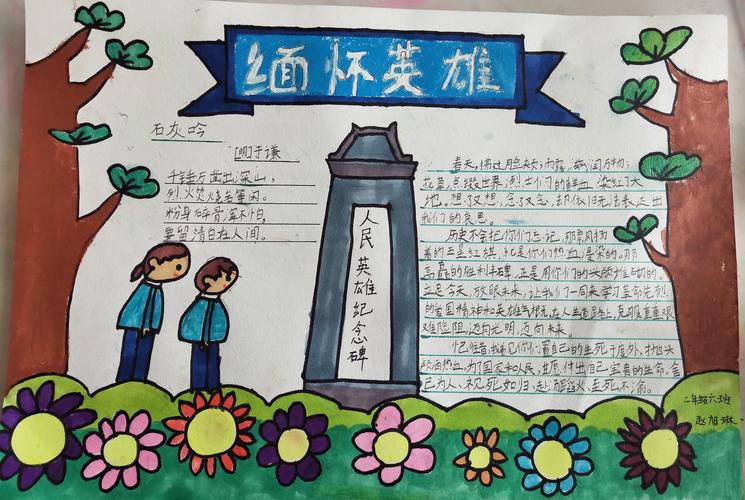 缅怀英雄
石灰吟
[明]于谦
千锤万凿出深山,
烈火焚烧若等闲。
粉身碎骨浑不怕,
要留清白在人间。
人民英雄纪念碑
春天,拂过脸颊;雨露,滋润万物;
花草,点缀世界,烈士们的鲜血,染红了大
地。想了又想,念了又念,却依旧无法表达出
我们的哀思。
历史不会把你们忘记,那
的五星红旗,就是你们热血浸染的。那
高矗的胜利丰碑,正是用你们的头颅堆砌的。
立足今天,放眼未来,让我们一同来学习革命先烈
的爱国精神和英雄气概,在人生道路上,克服重重艰
难险阻,迈向光明,迈向未来。
忆往昔,你们置自己的生死于度外,抛头
颅洒热血,为了国家和人民,甘愿付出自己宝贵的生命。舍
己为人、视死如归、赴汤蹈火、至死不渝。
二年级六班
赵旭琳